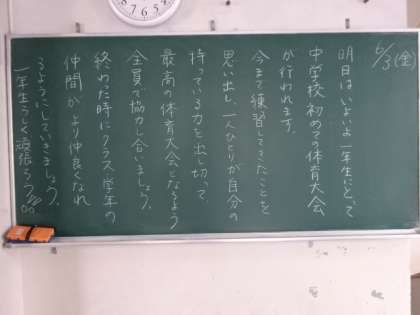 6/3(金)
明日はいよいよ一年生にとって
中学校初めての体育大会
が行われます。
今まで練習してきたことを
思い出し、一人ひとりが自分の
持っている力を出し切って、
最高の体育大会となるよう
全員で協力し合いましょう。
終わった時にクラス、学年の
仲間がより仲良くなれ
るようにしていきましょう。
一年生らしく頑張ろう!!
8
7
6
5
4